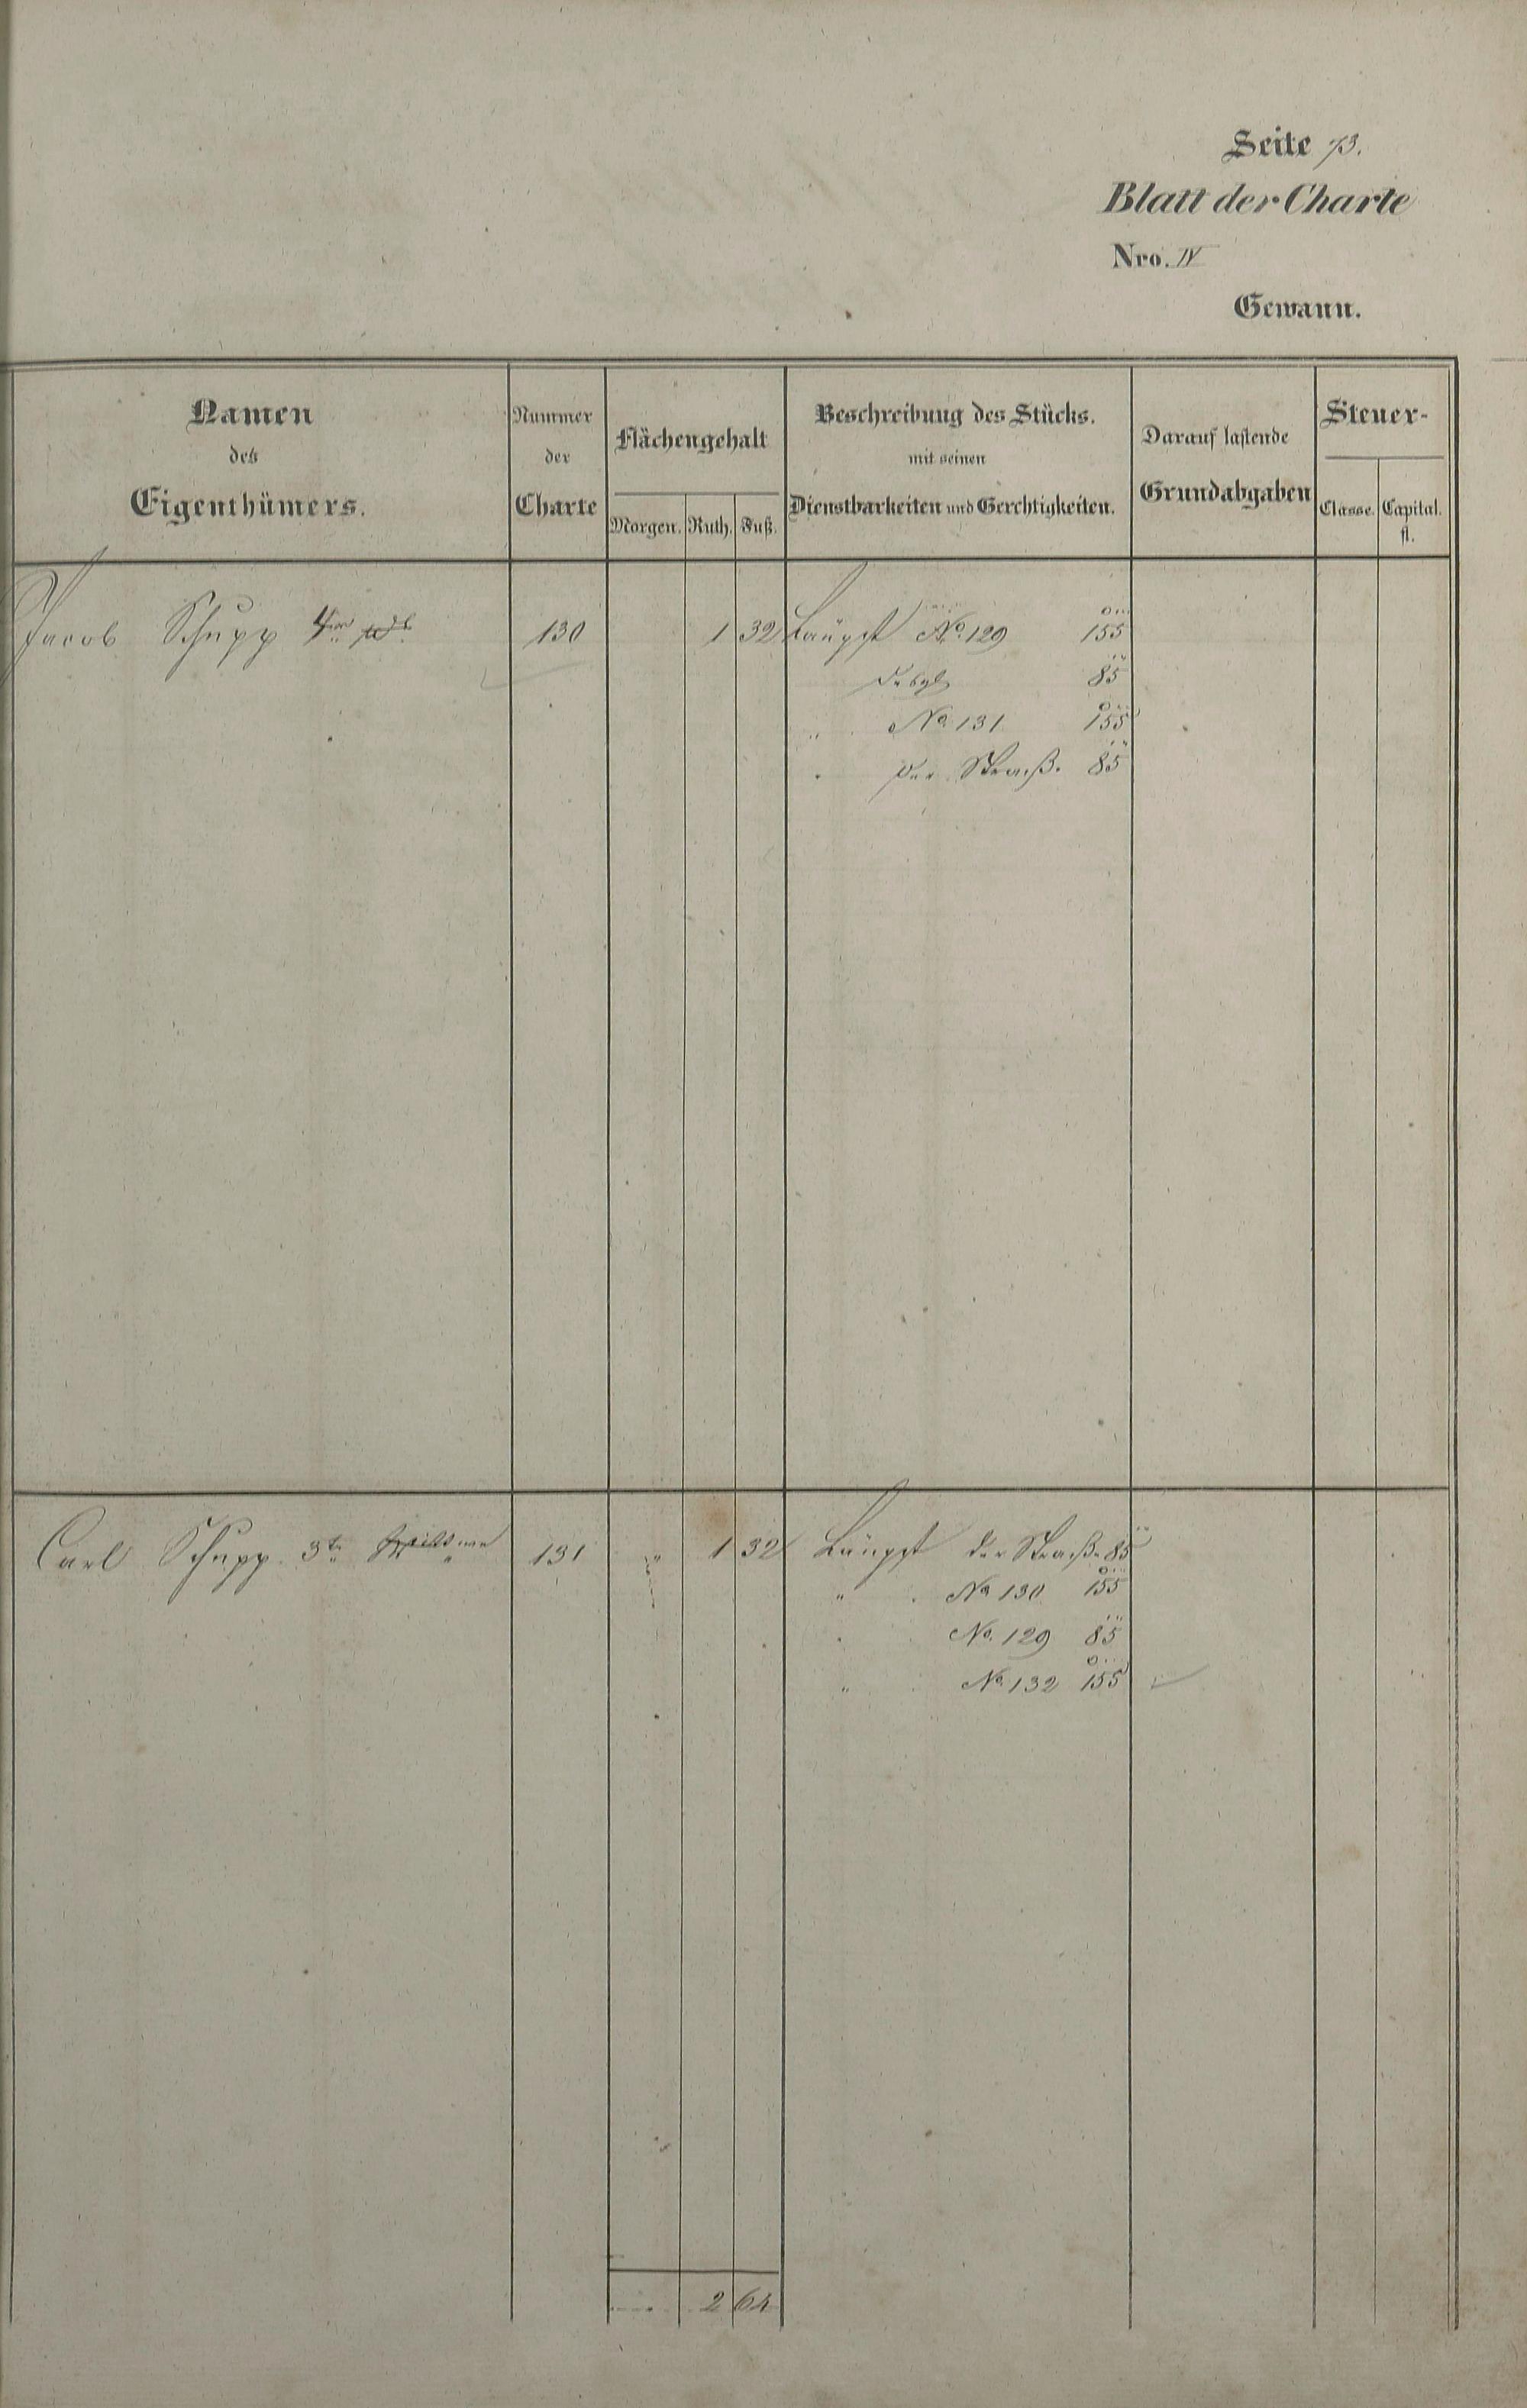 Seite 73.
Blatt der Charte
Nro. IV
Gewann.
Namen des Eigenthümers.
Nummer der Charte
Flächengehalt
Morgen. Ruth. Fuß.
Beschreibung des Stücks.
mit seinen
Dienstbarkeiten und Gerechtigkeiten.
Darauf lastende
Grundabgaben
Steuer-
Classe. Capital.
fl.
Jacob Schupp 4ter 130 1 32 Längst No. 129 155
Desgl. 85
" No. 131 155
" der Straße. 85
Carl Schupp 3te 131 " 1 32 Längst der Straße 85
" No 130 155
No. 129 85
" No. 132 155
2 64